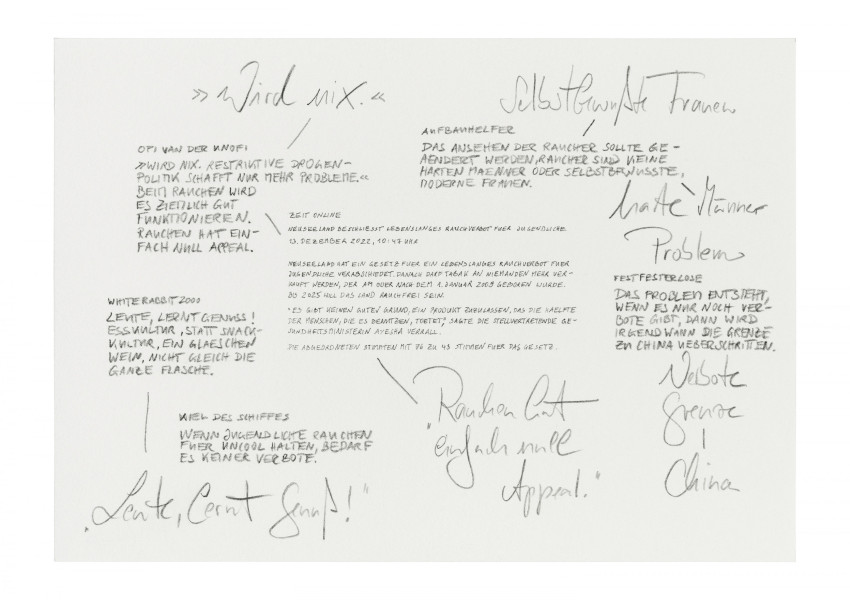 »Wird nix.«
OPI VAN DER KNOFI
»WIRD NIX. RESTRIKTIVE DROGEN-
POLITIK SCHAFFT NUR MEHR PROBLEME.«
BEIM RAUCHEN WIRD
ES ZIEMLICH GUT
FUNKTIONIEREN.
RAUCHEN HAT EIN-
FACH NULL APPEAL.
Selbstbewußte Frauen
AUFBAUHELFER
DAS ANSEHEN DER RAUCHER SOLLTE GE-
AENDERT WERDEN, RAUCHER SIND KEINE
HARTEN MAENNER ODER SELBSTBEWUSSTE,
MODERNE FRAUEN.
harte Männer
Problem
ZEIT ONLINE
NEUSEELAND BESCHLIESST LEBENSLANGES RAUCHVERBOT FUER JUGENDLICHE.
13. DEZEMBER 2022, 10:47 UHR
NEUSEELAND HAT EIN GESETZ FUER EIN LEBENSLANGES RAUCHVERBOT FUER
JUGENDLICHE VERABSCHIEDET. DANACH DARF TABAK AN NIEMANDEN MEHR VER-
KAUFT WERDEN, DER AM ODER NACH DEM 1. JANUAR 2009 GEBOREN WURDE.
BIS 2025 WILL DAS LAND RAUCHFREI SEIN.
"ES GIBT KEINEN GUTEN GRUND, EIN PRODUKT ZUZULASSEN, DAS DIE HAELFTE
DER MENSCHEN, DIE ES BENUTZEN, TOETET", SAGTE DIE STELLVERTRETENDE GE-
SUNDHEITSMINISTERIN AYESHA VERRALL.
DIE ABGEORDNETEN STIMMTEN MIT 76 ZU 43 STIMMEN FUER DAS GESETZ.
FESTFESTERLOSE
DAS PROBLEM ENTSTEHT,
WENN ES NUR NOCH VER-
BOTE GIBT, DANN WIRD
IRGENDWANN DIE GRENZE
ZU CHINA UEBERSCHRITTEN.
WHITERABBIT2000
LEUTE, LERNT GENUSS!
ESSKULTUR, STATT SNACK-
KULTUR, EIN GLAESCHEN
WEIN, NICHT GLEICH DIE
GANZE FLASCHE.
KIEL DES SCHIFFES
WENN JUGENDLICHE RAUCHEN
FUER UNCOOL HALTEN, BEDARF
ES KEINER VERBOTE.
"Rauchen hat
einfach null
Appeal."
Verbote
Grenze
|
China
„Leute, lernt Genuß!"